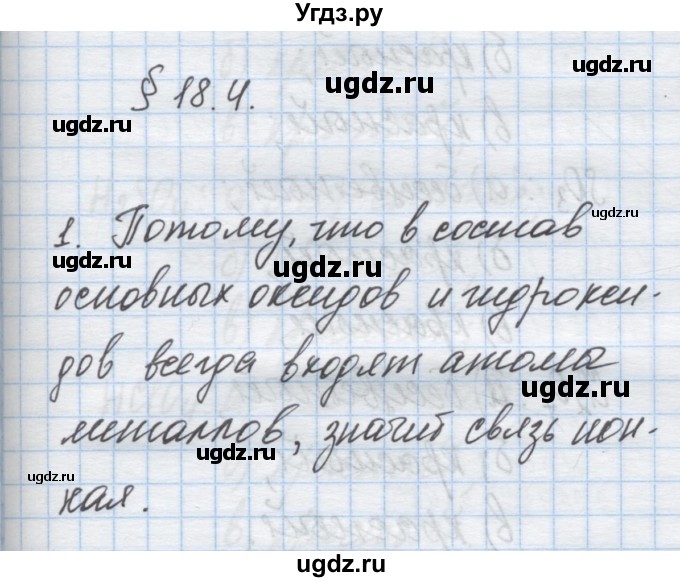 Угдз.ру
§ 18.4.
1. Потому, что в состав
основных оксидов и гидрокси-
дов всегда входят атома
металлов, значит связь ион-
ная.
ugdz.ru
ugdz.ru
ugdz.ru
ugdz.ru
ugdz.ru
ugdz.ru
ugdz.ru
ugdz.ru
ugdz.ru
ugdz.ru
ugdz.ru